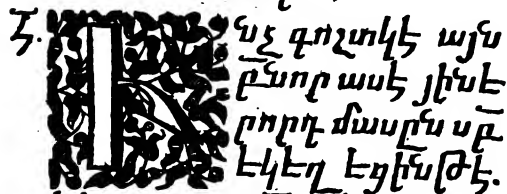 է. Ի նչ գոշտկէ այն
ընոր ասէ յինէ
րորդ մասըն սբ
էկեղ էցինթէ.